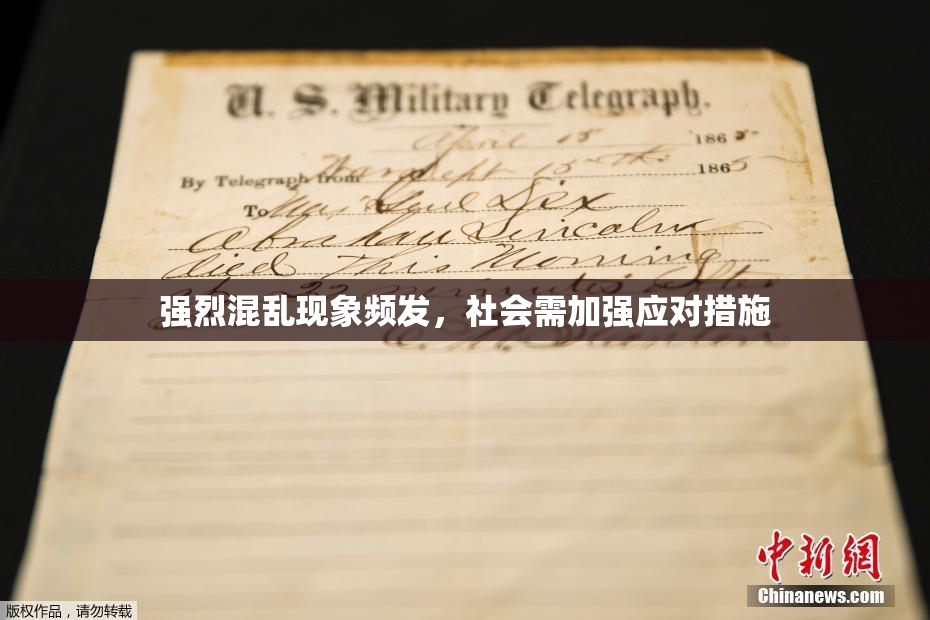 U. S. Military Telegraph.
April 15 1865
By Telegraph from War Dept 15th 1865
To Maj Genl Dix
Abraham Lincoln
died This Morning
at 22 minutes after
强烈混乱现象频发，社会需加强应对措施
E. M. Stanton
中新網
Chinanews.com
版权作品，请勿转载